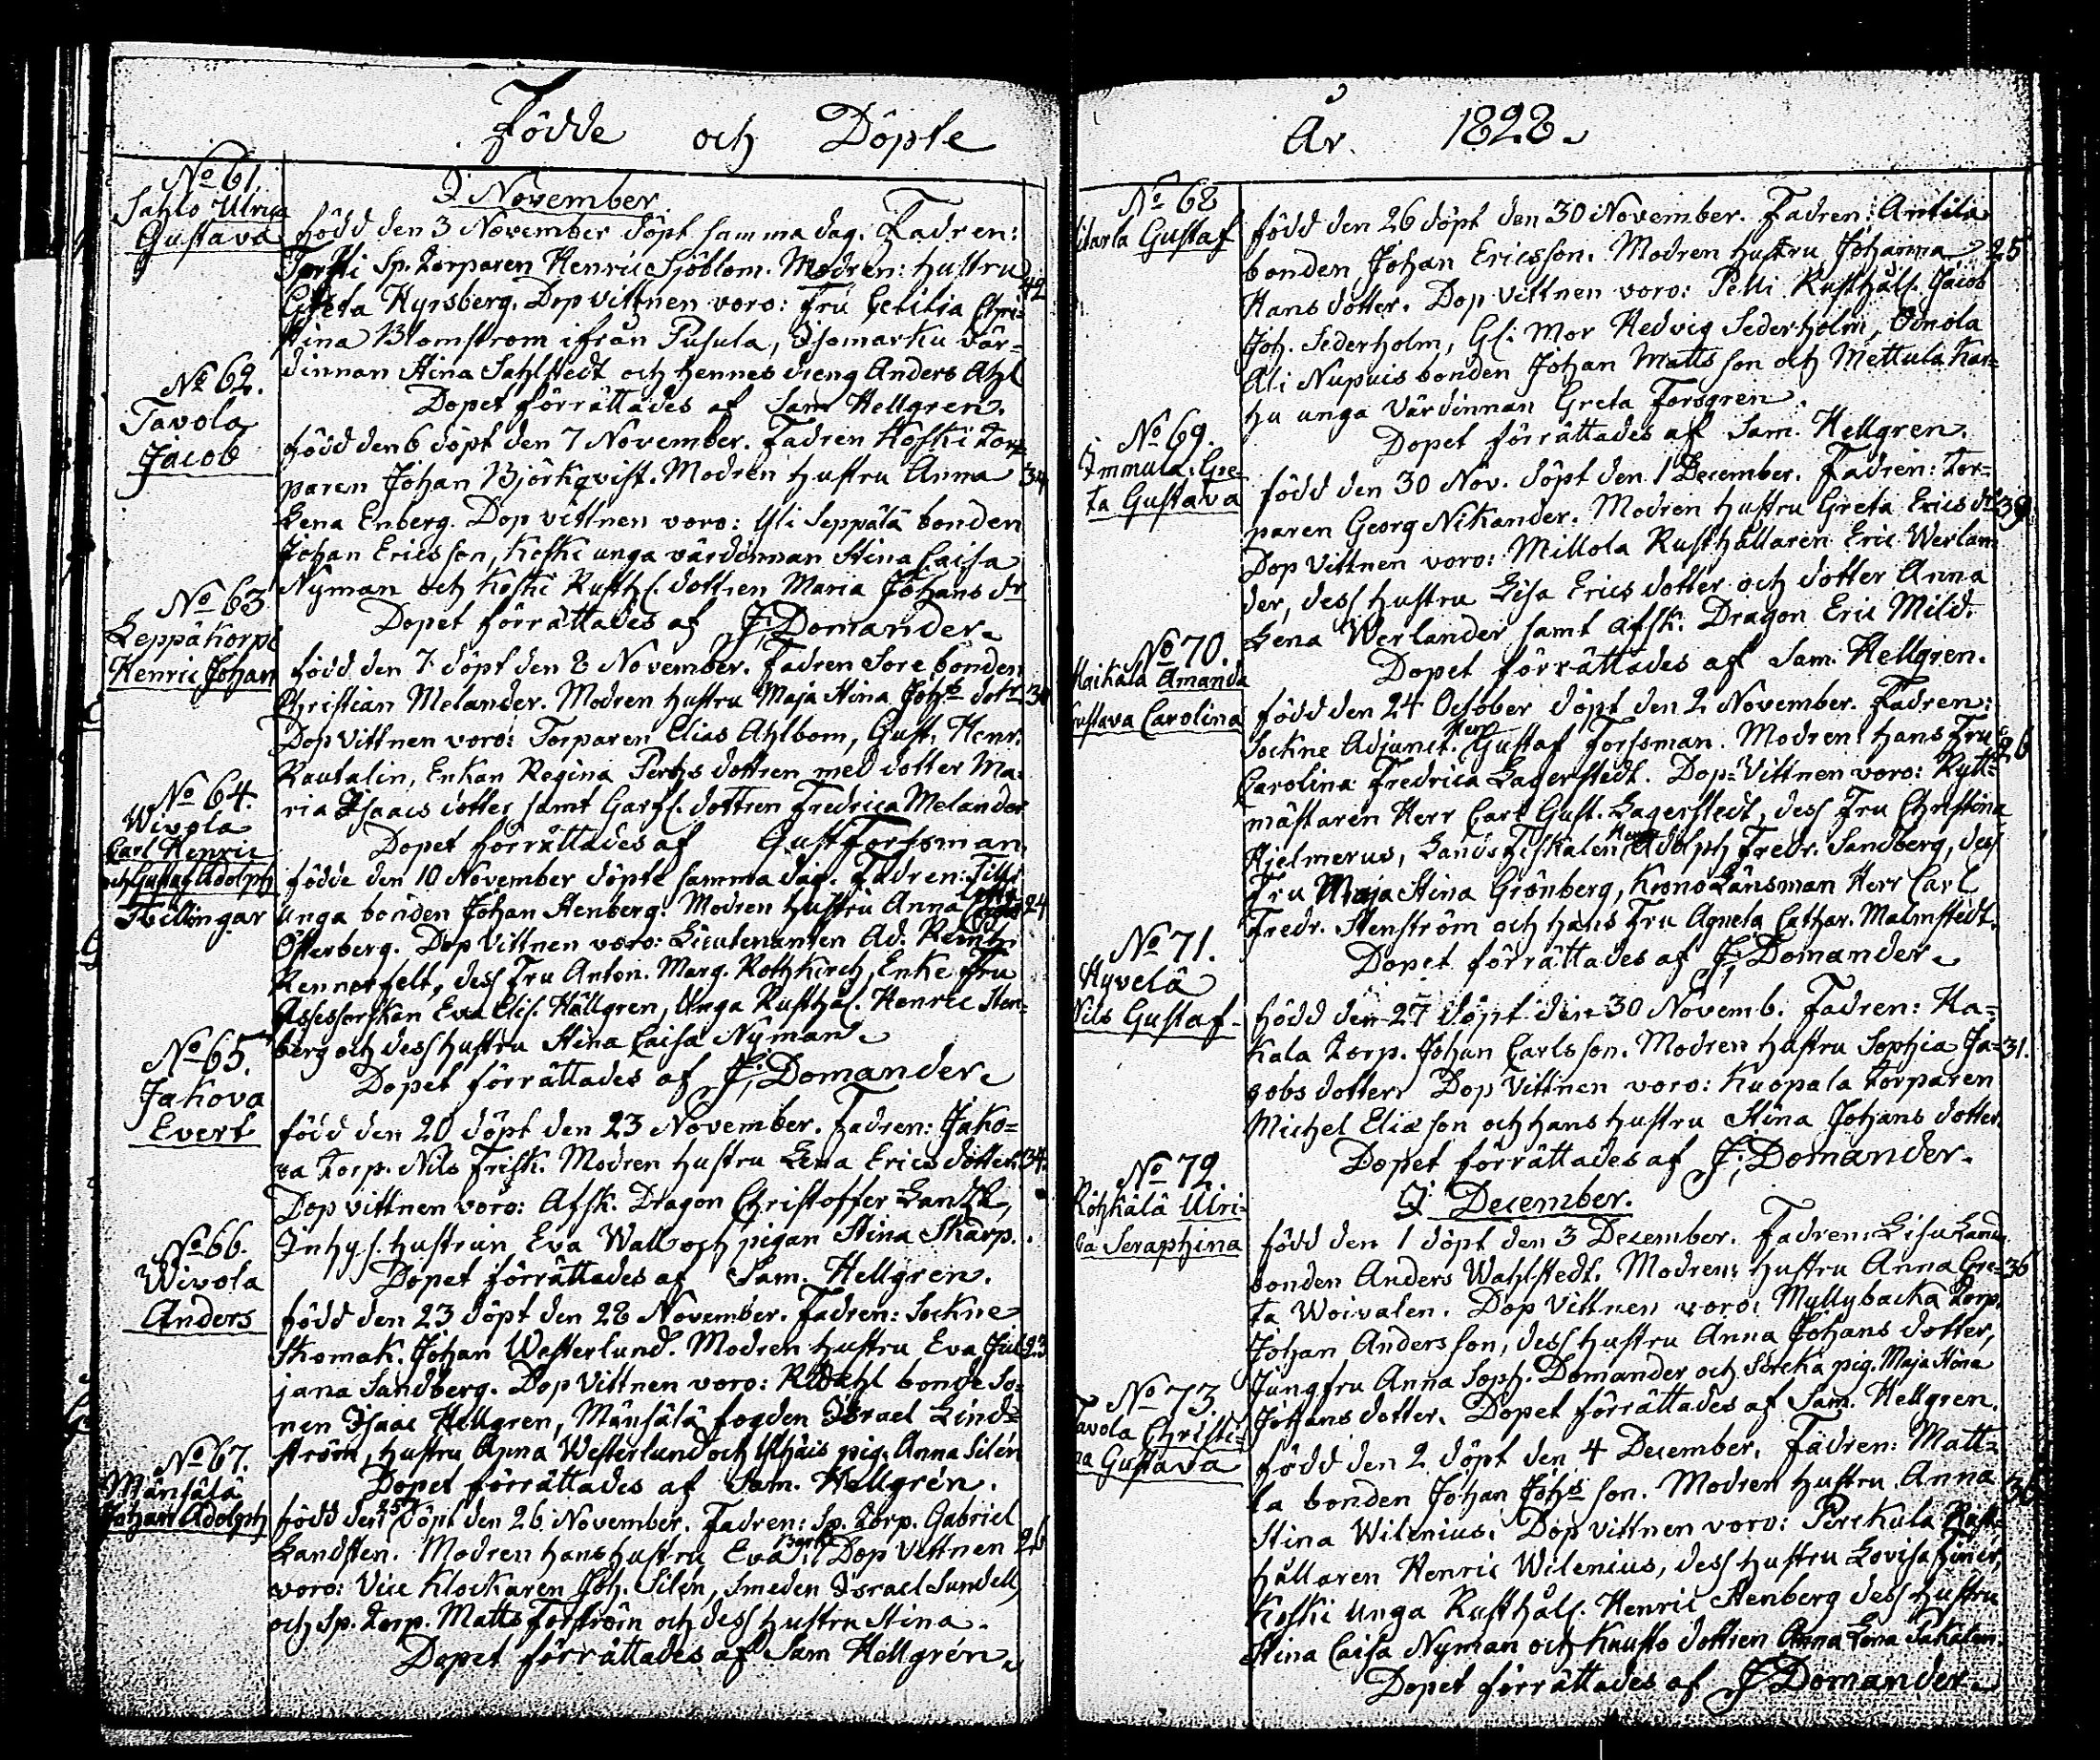 Födde och Döpte
I November.
No 61.
Sahlo Ulrica
Gustava
född den 3 November döpt samma dag. Fadren:
Torfti Sp. Torparen Henric Sjöblom. Modren: hustru
Greta Hyrsberg. Dop vittnen voro: Fru Cecilia Chri- 42
stina Blomstrom ifrån Pusula, Isomarku vär-
dinnan Stina Sahlstedt och hennes dreng Anders Ahl
Dopet förrättades af Sam Hellgren.
No 62.
Tavola
Jacob
född den 6 döpt den 7 November. Fadren Koski Tor-
paren Johan Björkqvist. Modren hustru Anna 34
Lena Enberg. Dop vittnen voro: Yli Seppälä bonden
Johan Ericsson, Koski unga värdinnan Stina Caisa
Nyman och Koski Rusth. dottren Maria Johans dr
Dopet förrättades af J; Domander.
No 63
Leppäkorpi
Henric Johan
född den 7 döpt den 8 November. Fadren Sore bonden
Christian Melander. Modren hustru Maja Stina Johs dotr 30
Dop vittnen voro: Torparen Elias Ahlbom, Gust. Henr.
Rautalin, Enkan Regina Pertts dottren med dotter Ma-
ria Isaacs dotter samt Garfv. dottren Fredrica Melander
Dopet förrättades af Gust Forssman.
No 64.
Wivola
Carl Henric
och Gustaf Adolph
Tvillingar
födde den 10 November döpte samma dag. Fadren: Tilli
unga bonden Johan Stenberg. Modren hustru Anna 24
Österberg. Dop vittnen voro: Lieutenanten Ad. Reinh.
Rennerfelt, dess Fru Anton. Marg. Rothkirch, Enke Fru
Assessorskan Eva Elis. Hällgren, Unga Rusthål. Henric Sten-
berg och dess hustru Stina Caisa Nyman.
Dopet förrättades af J; Domander.
No 65.
Jakova
Evert
född den 20 döpt den 23 November. Fadren: Jako-
va Torp. Nils Frisk. Modren hustru Lena Erics dotter. 34.
Dop vittnen voro: Afsk. Dragon Christoffer Landt,
Inhys. hustrun Eva Wall och pigan Stina Skarp.
Dopet förrättades af Sam. Hellgren.
No 66.
Wivola
Anders
född den 23 döpt den 28 November. Fadren: Sockne
Skomak. Johan Westerlund. Modren hustru Eva Jul- 23
jana Sandberg. Dop Vittnen voro: R Dahl bonde so-
nen Isaac Hellgren, Mänsälä fogden Israel Lind-
ström, hustru Anna Westerlund och Uhais pig. Anna Silén
Dopet förrättades af Sam. Hellgrén.
No 67.
Mänsälä
Johan Adolph
född den 25 döpt den 26 November. Fadren: Sp. Torp. Gabriel
Landsten. Modren hans hustru Eva Bertil. Dop Vittnen 26
voro: Vice Klockaren Joh. Silén, Smeden Israel Sundell,
och Sp. Torp. Matts Forström och dess hustru Stina.
Dopet förrättades af Sam Hellgrén.
År 1828.
No 68
Gustaf
född den 26 döpt den 30 November. Fadren: Antila
bonden Johan Ericsson. Modren hustru Johanna 25
Hans dotter. Dop Vittnen voro: Pelli Rusthåll. Jacob
Joh. Sederholm, Gl: Mor Hedvig Sederholm, Ojnola
Ali Nupuis bonden Johan Matts son och Mettula Kar-
hu unga Värdinnan Greta Forsgren.
Dopet förrättades af Sam. Hellgren.
No 69.
Immula: Gre-
ta Gustava
född den 30 Nov. döpt den 1 December. Fadren: Tor-
paren Georg Nikander. Modren hustru Greta Erics dr 39
Dop Vittnen voro: Millola Rusthållaren Eric Werlan-
der, dess hustru Lisa Erics dotter och dotter Anna
Lena Werlander samt afsk. Dragon Eric Mild.
Dopet förrättades af Sam. Hellgren.
No 70.
Haikala Amanda
Gustava Carolina
född den 24 October döpt den 2 November. Fadren:
Sockne Adjunct. Herr Gustaf Forssman. Modren hans Fru 26
Carolina Fredrica Lagerstedt. Dop-Vittnen voro: Rytt-
mästaren Herr Carl Gust. Lagerstedt, dess Fru Christina
Hjelmerus, Lands Fiskalen Herr Adolph Fredr. Sandberg, dess
Fru Maja Stina Grönberg, Krono Länsman Herr Carl
Fredr. Stenström och hans Fru Agneta Cathar. Malmstedt.
Dopet förrättades af J; Domander.
No 71.
Hyvelä
Nils Gustaf
född den 27 döpt den 30 Novemb. Fadren: Ha-
kala Torp. Johan Carlsson. Modren hustru Sophia Ja- 31.
cobs dotter. Dop Vittnen voro: Kuopala torparen
Michel Elias son och hans hustru Stina Johans dotter
Dopet förrättades af J; Domander.
I December.
No 72.
Röhkälä Ulri-
ca Seraphina
född den 1 döpt den 3 December. Fadren: Lisu Land
bonden Anders Wahlstedt. Modren: hustru Anna Gre- 36
ta Woivalen. Dop Vittnen voro: Myllybacka Torp.
Johan Andersson, dess hustru Anna Johans dotter,
Jungfru Anna Soph. Domander och Soreka pig. Maja Stina
Johans dotter. Dopet förrättades af Sam. Hellgren.
No 73.
Tavola Christi-
na Gustava
född den 2 döpt den 4 December. Fadren: Matt-
la bonden Johan Johs son. Modren hustru Anna 36
Stina Wilenius. Dop vittnen voro: Perekula Rust-
hållaren Henric Wilenius, dess hustru Lovisa
Koski unga Rusthåls. Henric Stenberg dess hustru
Stina Caisa Nyman och Knuuts dottren Anna Lena Takalen
Dopet förrättades af J Domander.